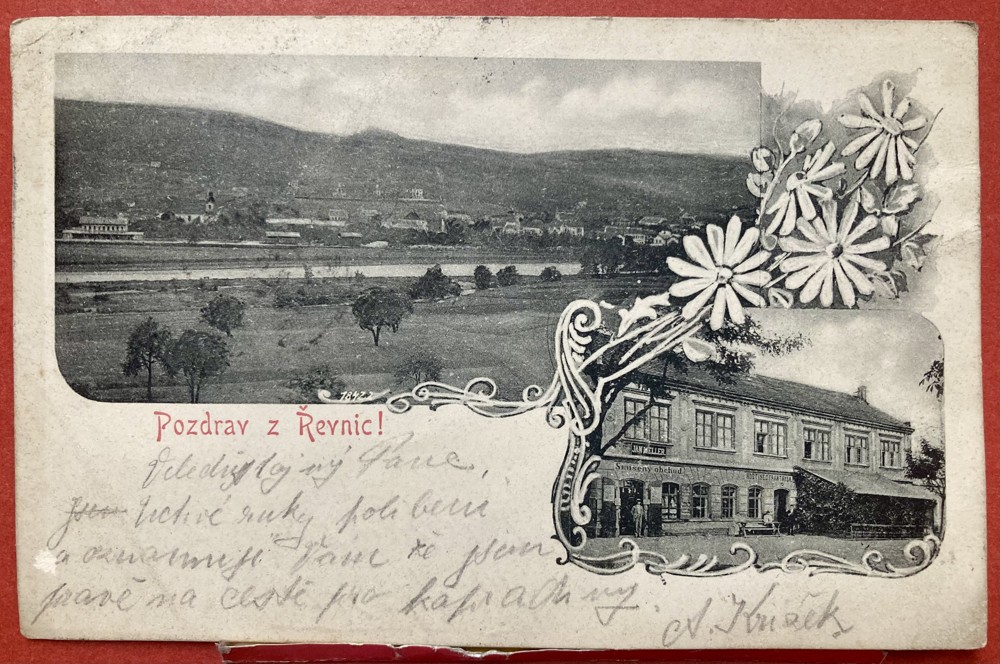 1842
Pozdrav z Řevnic!
JAN MELLER
Smíšený obchod
Veledůstojný Pane,
Jsem Uctivé ruky políbení
a oznamuji Vám že jsem
pravě na cestě pro kapradiny.
A.